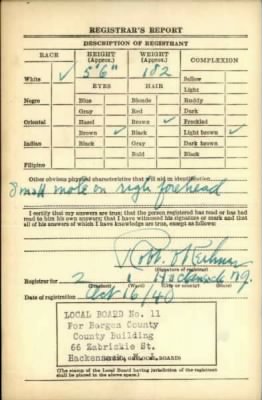 REGISTRAR'S REPORT
DESCRIPTION OF REGISTRANT
RACE HEIGHT (Approx.) WEIGHT (Approx.) COMPLEXION
White ✓ 5'6" 182 Sallow
EYES HAIR Light
Negro Blue Blonde Ruddy
Gray Red Dark
Oriental Hazel Brown ✓ Freckled
Brown ✓ Black Light brown ✓
Indian Black Gray Dark brown
Bald Black
Filipino
Other obvious physical characteristics that will aid in identification
Small mole on right forehead
I certify that my answers are true; that the person registered has read or has had
read to him his own answers; that I have witnessed his signature or mark and that
all of his answers of which I have knowledge are true, except as follows:
(Signature of registrar)
Registrar for 2 Hackensack N.J.
(City or county) (State)
Date of registration Oct 16/40
LOCAL BOARD No. 11
For Bergen County
County Building
66 Zabriskie St.
Hackensack, N. J.
(The stamp of the Local Board having jurisdiction of the registrant
shall be placed in the above space.)